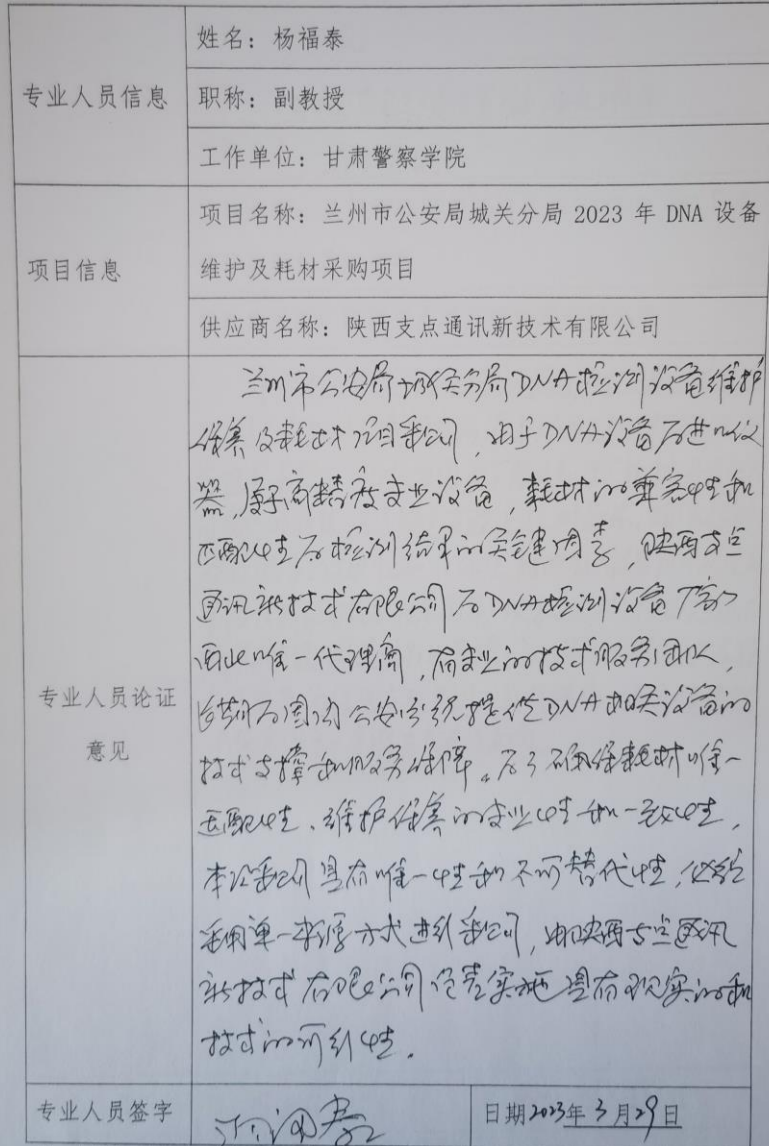 专业人员信息
姓名：杨福泰
职称：副教授
工作单位：甘肃警察学院
项目信息
项目名称：兰州市公安局城关分局 2023 年 DNA 设备
维护及耗材采购项目
供应商名称：陕西支点通讯新技术有限公司
专业人员论证
意见
兰州市公安局城关分局DNA检测设备维护
保养及耗材项目采购，由于DNA设备为进口仪
器，属于高精度专业设备，耗材的兼容性和
匹配性为检测结果的关键因素，陕西支点
通讯新技术有限公司为DNA检测设备厂家
西北唯一代理商，有专业的技术服务团队，
长期为国内公安系统提供DNA相关设备的
技术支撑和服务保障。为了确保耗材唯一
匹配性、维护保养的专业性和一致性，
本次采购具有唯一性和不可替代性，必须
采用单一来源方式进行采购，由陕西支点通讯
新技术有限公司负责实施具有现实的和
技术的可行性.
专业人员签字
日期2023年3月29日